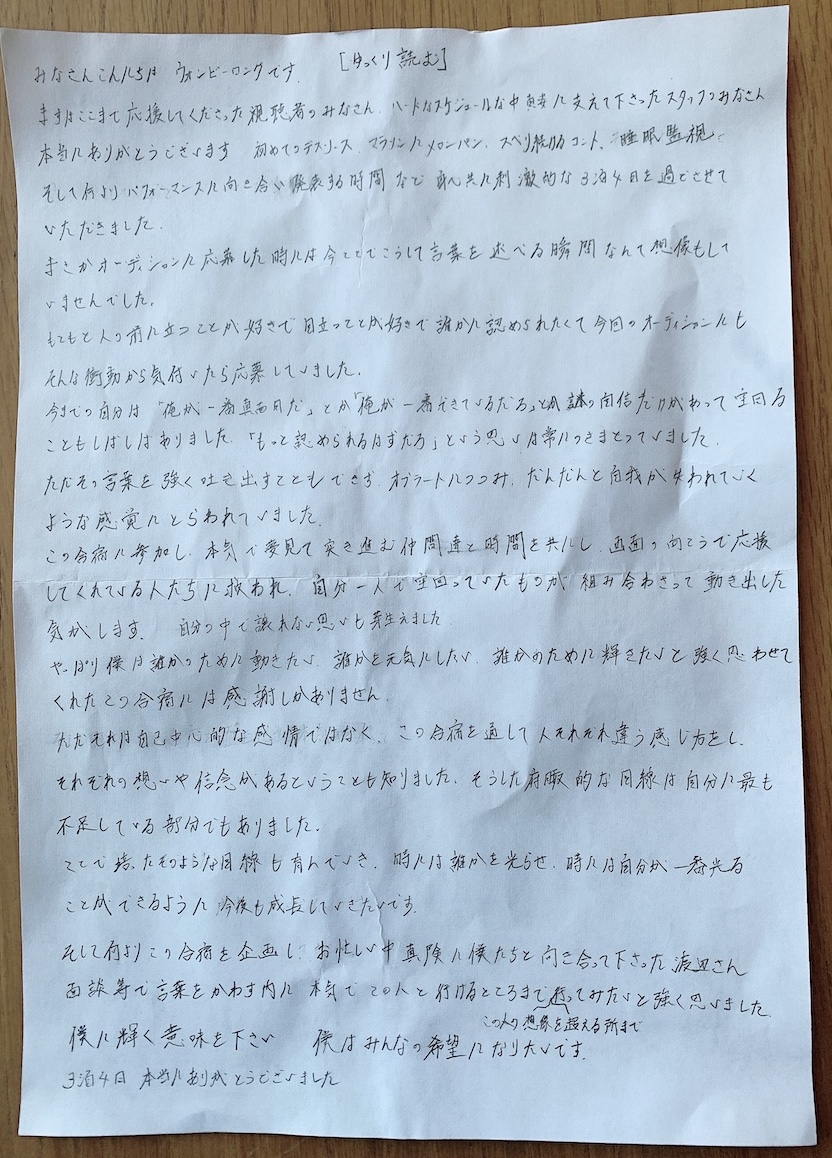 [ゆっくり読む]
みなさんこんにちは ウォンビーロングです.
まずはここまで応援してくださった視聴者のみなさん、ハードなスケジュールな中真摯に支えて下さったスタッフのみなさん
本当にありがとうございます 初めてのデスソース、マラソンにメロンパン、スベリ続けるコント、睡眠監視
そして何よりパフォーマンスに向き合い発表する時間など 身心共に刺激的な3泊4日を過ごさせて
いただきました.
まさかオーディションに応募した時には今ここでこうして言葉を述べる瞬間なんて想像もして
いませんでした.
もともと人の前に立つことが好きで目立つことが好きで誰かに認められたくて今回のオーディションにも
そんな衝動から気付いたら応募していました.
今までの自分は「俺が一番真面目だ」とか「俺が一番できているだろ」とか謎の自信だけがあって空回る
こともしばしばありました.「もっと認められるはずだろ」という思いは常につきまとっていました.
ただその言葉を強く吐き出すこともできず、オブラートにつつみ、だんだんと自我が失われていく
ような感覚にとらわれていました.
この合宿に参加し、本気で夢見て突き進む仲間達と時間を共にし、画面の向こうで応援
してくれている人たちに救われ、自分一人で空回っていたものが組み合わさって動き出した
気がします. 自分の中で譲れない思いも芽生えました
やっぱり僕は誰かのために動きたい、誰かを元気にしたい、誰かのために輝きたいと強く思わせて
くれたこの合宿には感謝しかありません.
ただそれは自己中心的な感情ではなく、この合宿を通して人それぞれ違う感じ方をし、
それぞれの想いや信念があるということも知りました. そうした俯瞰的な目線は自分に最も
不足している部分でもありました.
ここで培ったそのような目線も育んでいき、時には誰かを光らせ、時には自分が一番光る
ことができるように今後も成長していきたいです.
そして何よりこの合宿を企画し、お忙しい中真険に僕たちと向き合って下さった渡辺さん
面談等で言葉をかわす内に本気でこの人と行けるところまで行ってみたいと強く思いました.
この人の想像を超える所まで
僕に輝く意味を下さい 僕はみんなの希望になりたいです.
3泊4日 本当にありがとうございました